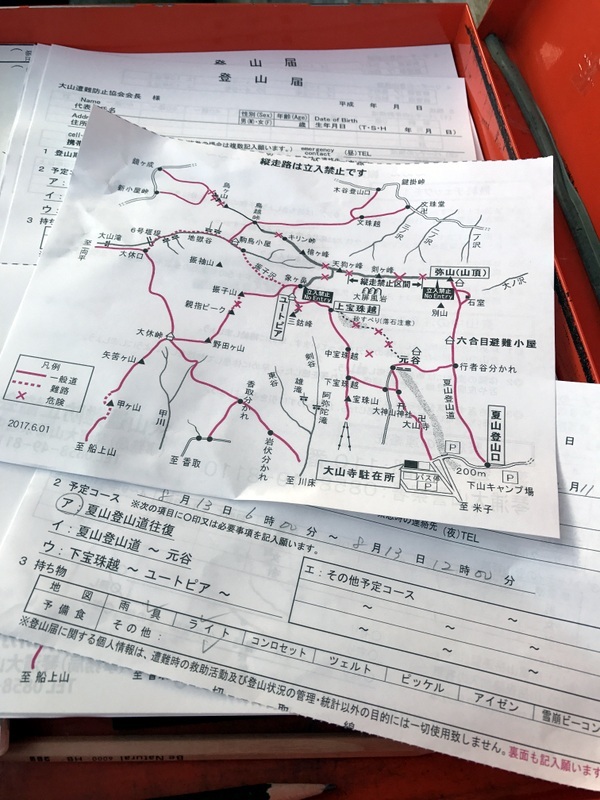 登山届
登山届
大山遭難防止協会会長 様
平成 年 月 日
Name
性別(Sex)
年齢(Age)
Date of Birth
歳
生年月日 (T・S・H 年 月 日)
emergency
contact
(昼)TEL
縦走路は立入禁止です
鏡ヶ成
新小屋峠
烏ヶ山
鳥越峠
木谷登山口
鍵掛峠
文珠堂
文珠越
大山滝
6号堰堤
地獄谷
駒鳥小屋
キリン峠
槍ヶ峰
天狗ヶ峰
剣ヶ峰
弥山(山頂)
大休口
振袖山
振子沢
象ヶ鼻
縦走禁止区間
立入禁止
No Entry
立入禁止
No Entry
大屏風岩
石室
別山
振子山
親指ピーク
ユートピア
三鈷峰
上宝珠越
砂すべり(落石注意)
六合目避難小屋
大休峠
野田ヶ山
中宝珠越
元谷
行者谷分かれ
矢筈ヶ山
甲ヶ山
甲川
香取分かれ
東谷
剣谷
雄滝
阿弥陀滝
下宝珠越
宝珠山
大神山神社
大山寺
夏山登山道
夏山登山口
凡例
一般道
難路
危険
2017.6.01
至 船上山
至 香取
岩伏分かれ
至 川床
大山寺駐在所
バス停
P
P
200m
下山キャンプ場
至 米子
(夜)TEL
2 予定コース
※次の項目に○印又は必要事項を記入します。
8月13日6時00分 ~ 8月13日12時00分
ア:夏山登山道往復
イ:夏山登山道 ~ 元谷
ウ:下宝珠越 ~ ユートピア ~
エ:その他予定コース
3 持ち物
地図
雨具
ライト
コンロセット
ツェルト
ピッケル
アイゼン
雪崩ビーコン
予備食
その他:
※登山届に関する個人情報は、遭難時の救助活動及び登山状況の管理・統計以外の目的には一切使用致しません。
裏面も記入願います
至 船上山